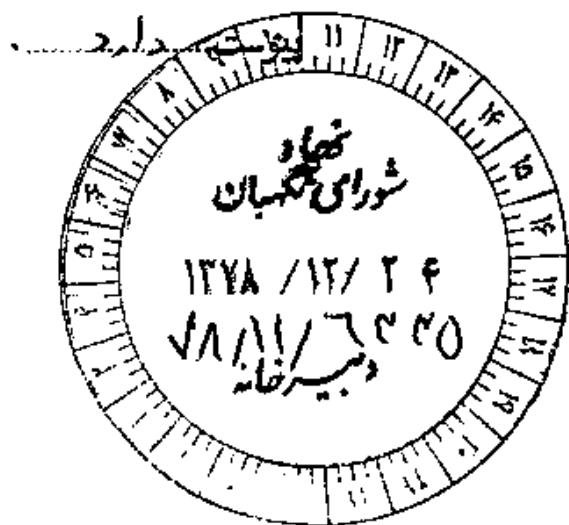 پیوست ... دارد ...
نهاد
شورای نگهبان
۱۳۷۸ /۱۲/ ۲۴
۷۸/۱۱/۶۳۳۵
دبیرخانه